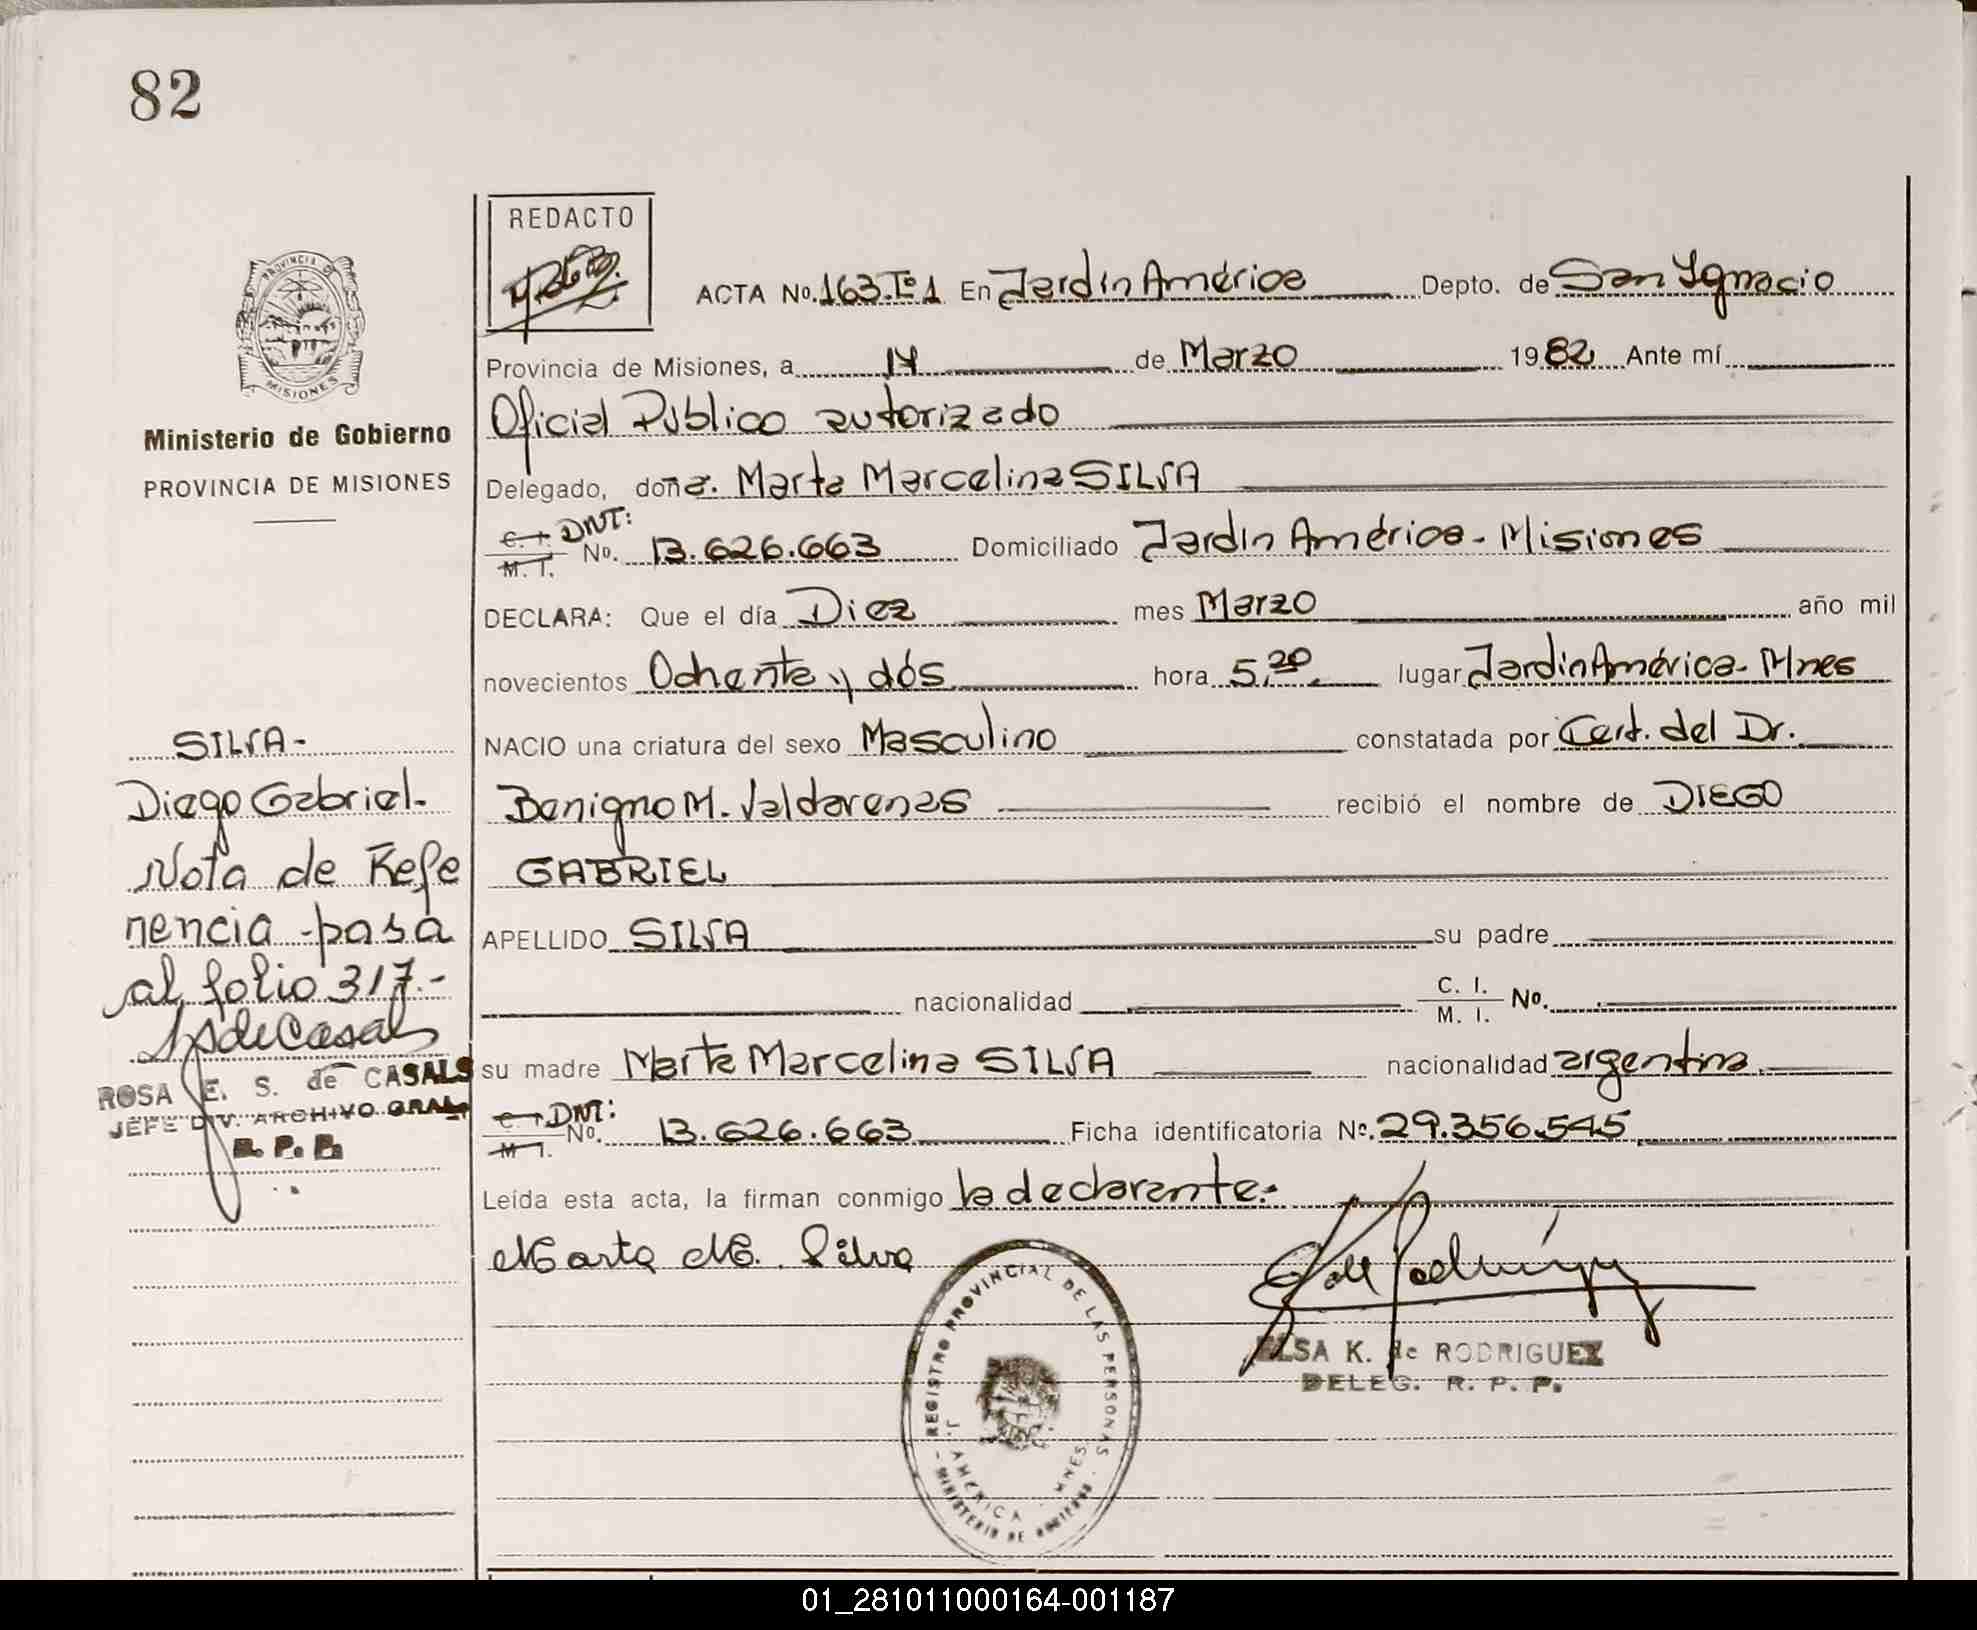 82
REDACTO
ACTA No. 163. Tº 1 En Jardín América Depto. de San Ignacio
Provincia de Misiones, a 14 de Marzo 1982 Ante mí
Oficial Público autorizado
Ministerio de Gobierno
PROVINCIA DE MISIONES
Delegado, doña. Marta Marcelina SILVA
C. I. DNI:
M. I. No. 13.626.663 Domiciliado Jardín América - Misiones
DECLARA: Que el día Diez mes Marzo año mil
novecientos Ochenta y dós hora 5,20. lugar Jardín América - Mnes
NACIO una criatura del sexo Masculino constatada por Cert. del Dr.
Benigno M. Valdarenas recibió el nombre de DIEGO
GABRIEL
APELLIDO SILVA su padre
nacionalidad C. I.
M. I. No.
su madre Marta Marcelina SILVA nacionalidad argentina.
C. I. DNI:
M. I. No. 13.626.663 Ficha identificatoria Nº. 29.356.545
Leída esta acta, la firman conmigo la declarante.-
Marta M. Silva
ELSA K. de RODRIGUEZ
DELEG. R. P. P.
REGISTRO PROVINCIAL DE LAS PERSONAS
J. AMERICA - MNES
MINISTERIO DE GOBIERNO
PROVINCIA DE
MISIONES
SILVA -
Diego Gabriel.
Nota de Refe
rencia pasa
al folio 317.-
ROSA E. S. de CASALS
JEFE DIV. ARCHIVO GRAL.
R. P. P.
01_281011000164-001187